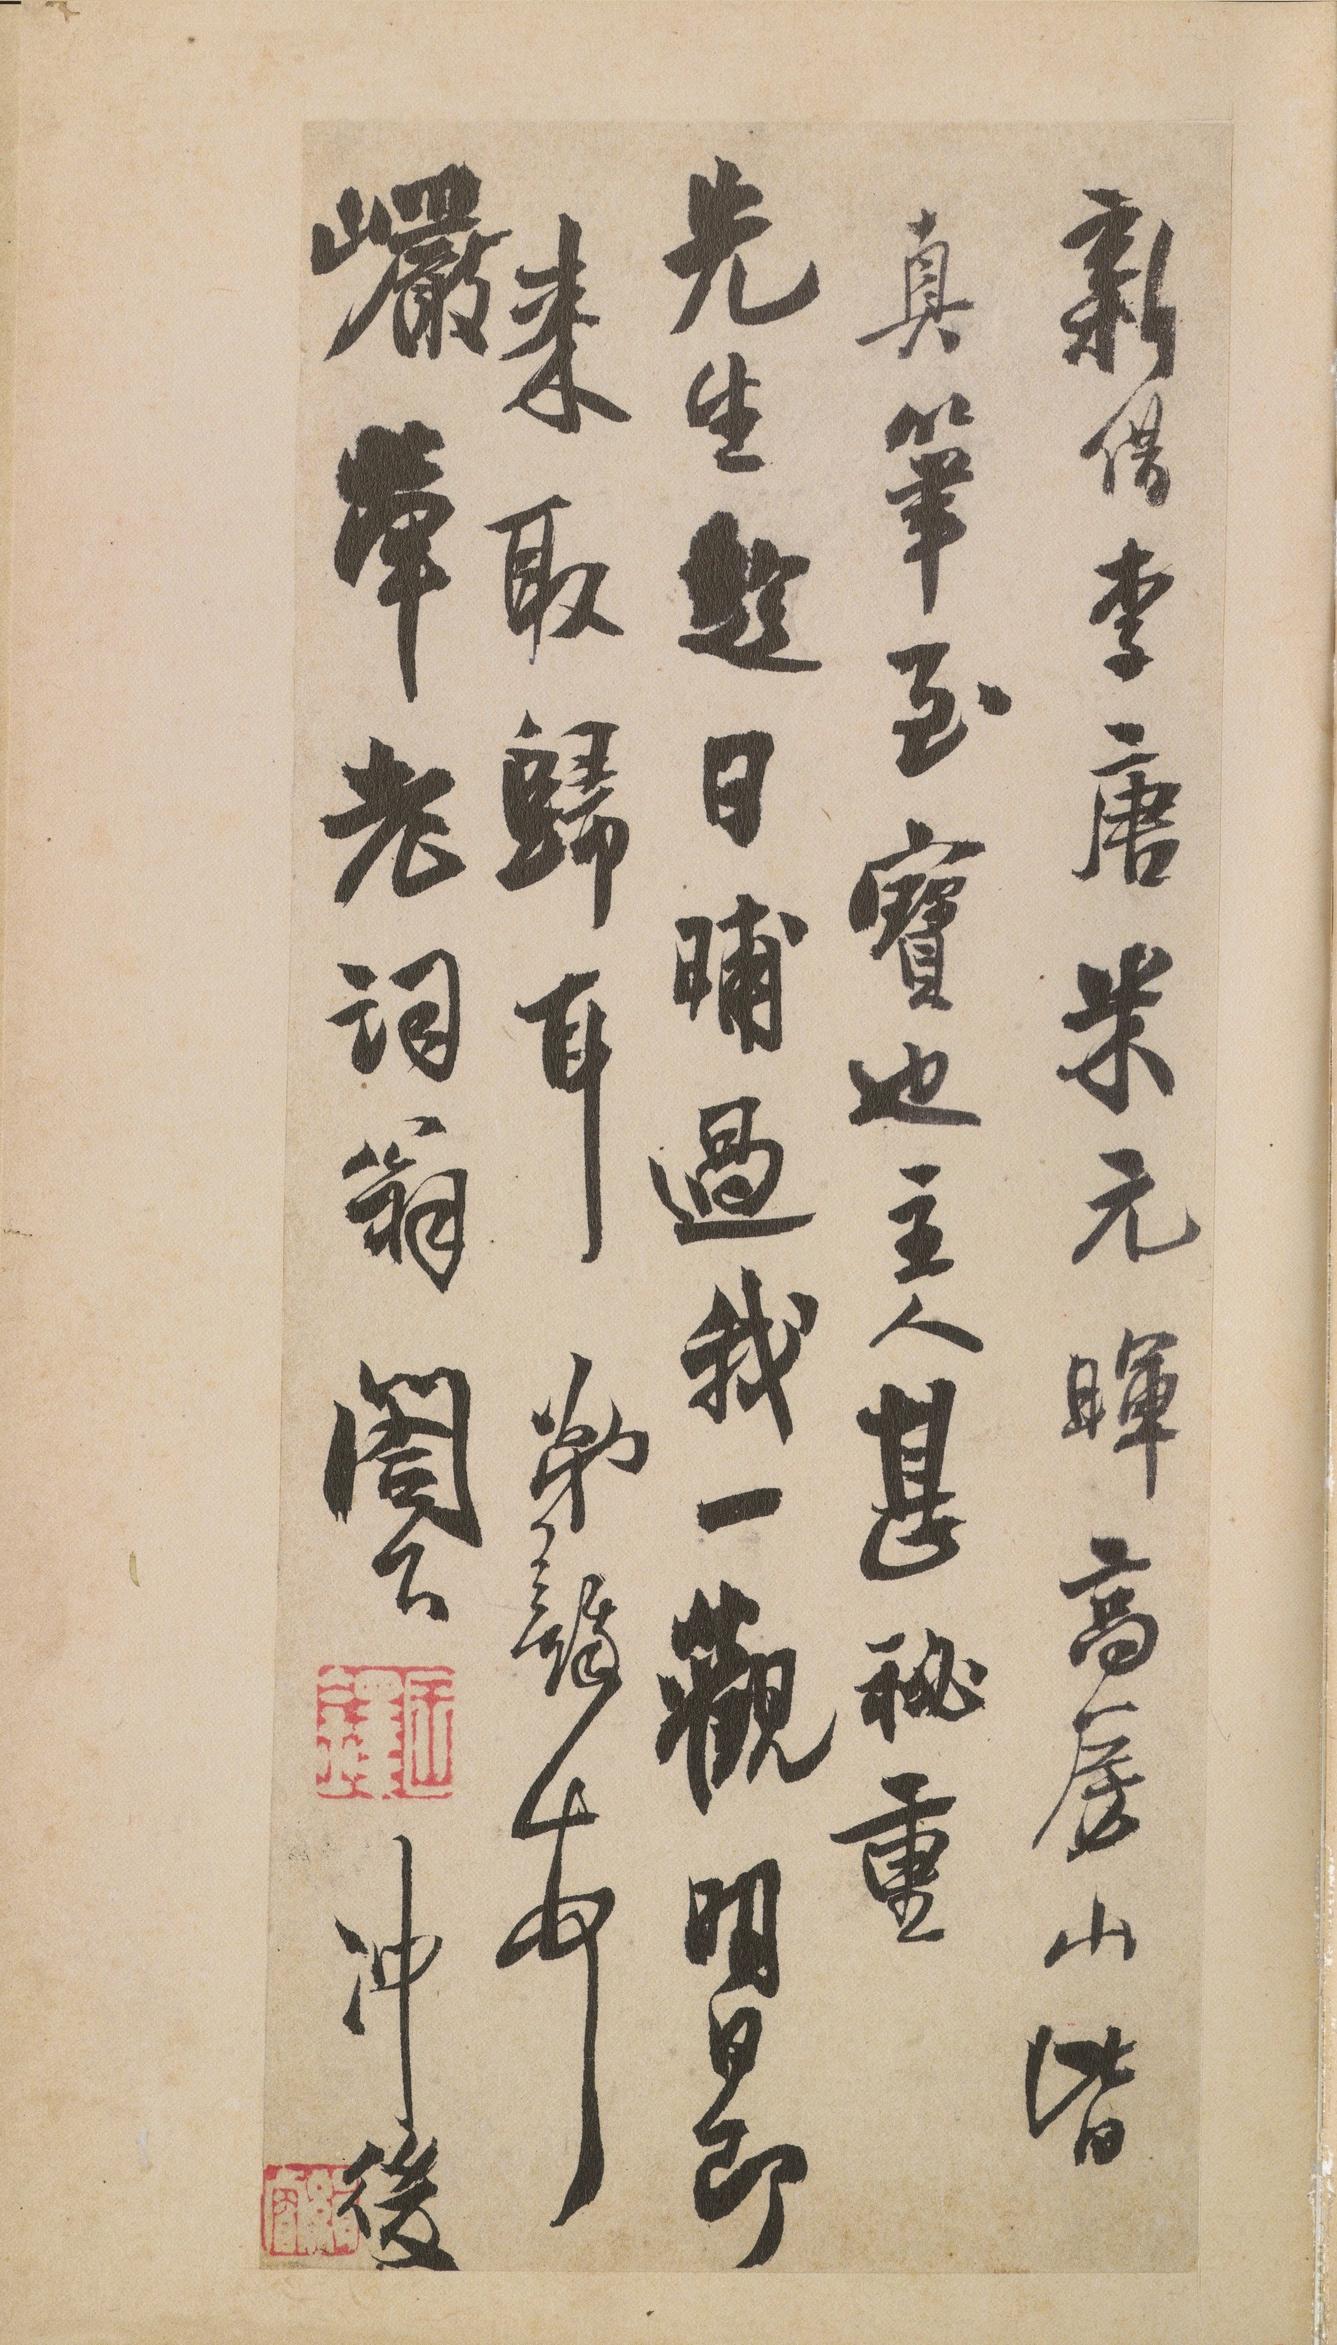 新借李唐米元暉高房山皆
真筆至寶也主人甚秘重
先生趁日晡過我一觀明日即
來取歸耳 弟
巖犖老詞翁閣下 沖後